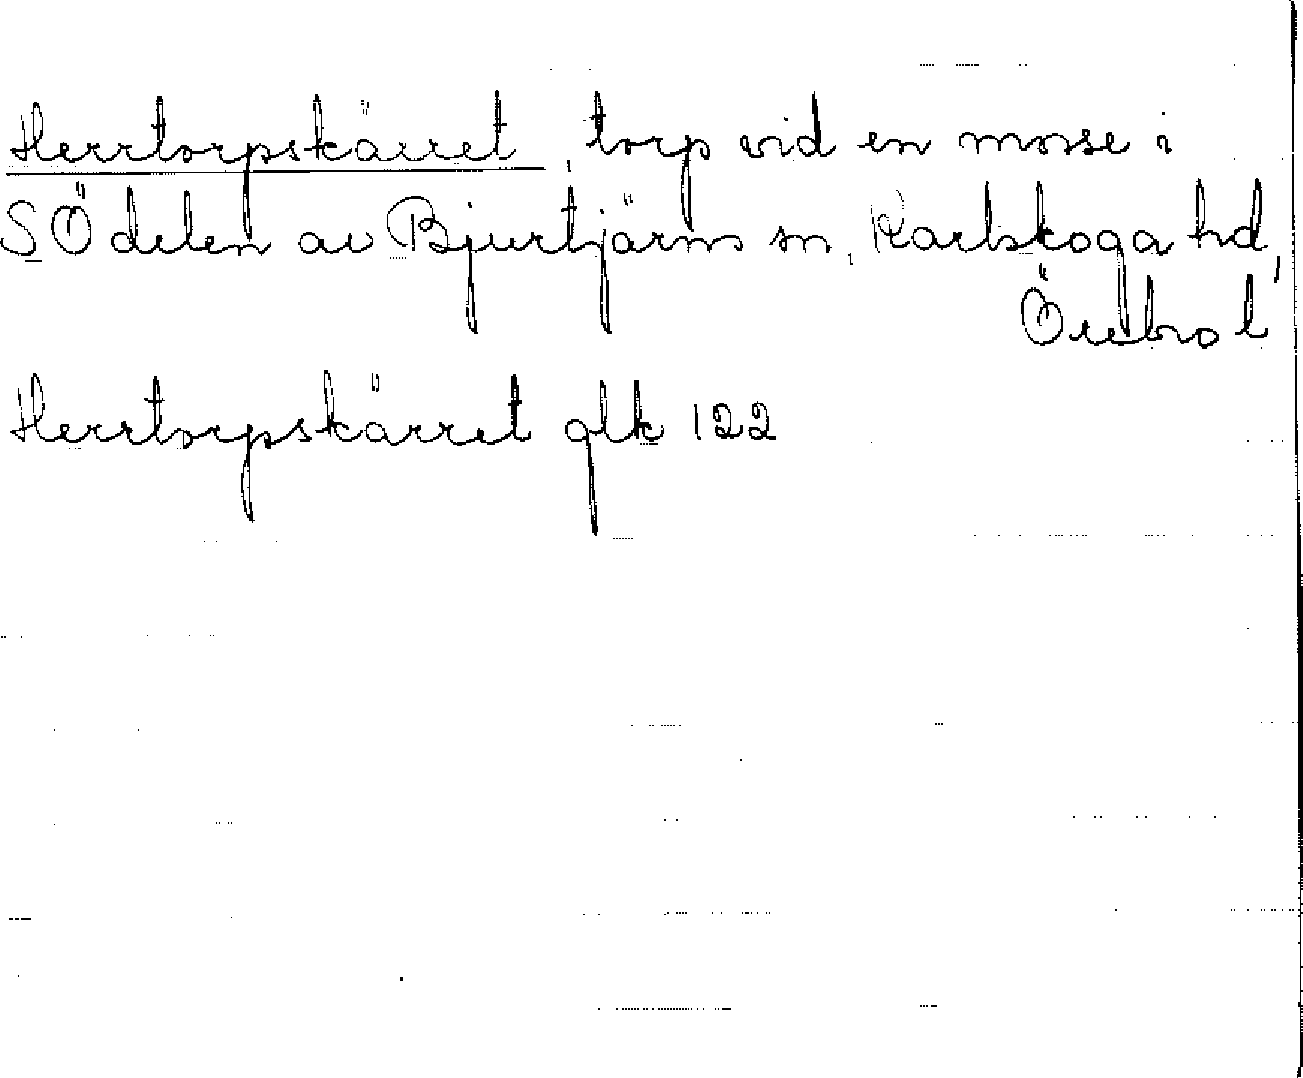 Herrtorpskärret, torp vid en mosse i
SÖ delen av Bjurtjärns sn, Karlskoga hd,
Örebro l
Herrtorpskärret glk 122